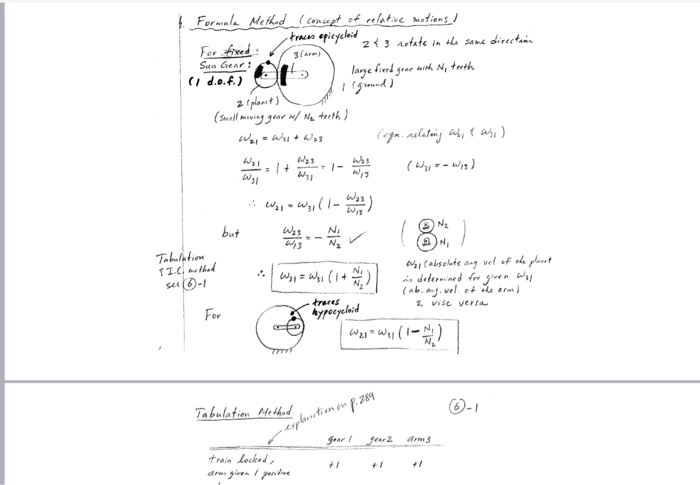 6. Formula Method (concept of relative motions)
traces epicycloid
2 & 3 rotate in the same direction
For fixed
Sun Gear:
(1 d.o.f.)
3 (arm)
large fixed gear with N₁ teeth
1 (ground)
2 (planet)
(small moving gear w/ N₂ teeth)
ω₂₁ = ω₃₁ + ω₂₃
(eqn. relating ω₂₁ & ω₃₁)
ω₂₁/ω₃₁ = 1 + ω₂₃/ω₃₁ = 1 - ω₂₃/ω₁₃
(ω₃₁ = - ω₁₃)
∴ ω₂₁ = ω₃₁ (1 - ω₂₃/ω₁₃)
but
ω₂₃/ω₁₃ = - N₁/N₂ ✓
② N₂
① N₁
Tabulation
& I.C. method
see ⑥-1
∴ ω₂₁ = ω₃₁ (1 + N₁/N₂)
ω₂₁ (absolute ang vel. of the planet
is determined for given ω₃₁
(ab. ang. vel. of the arm)
& vise versa
For
traces
hypocycloid
ω₂₁ = ω₃₁ (1 - N₁/N₂)
Tabulation Method
explanation on p. 289
⑥-1
gear 1 gear 2 arm 3
train locked,
arm given 1 positive
+1 +1 +1